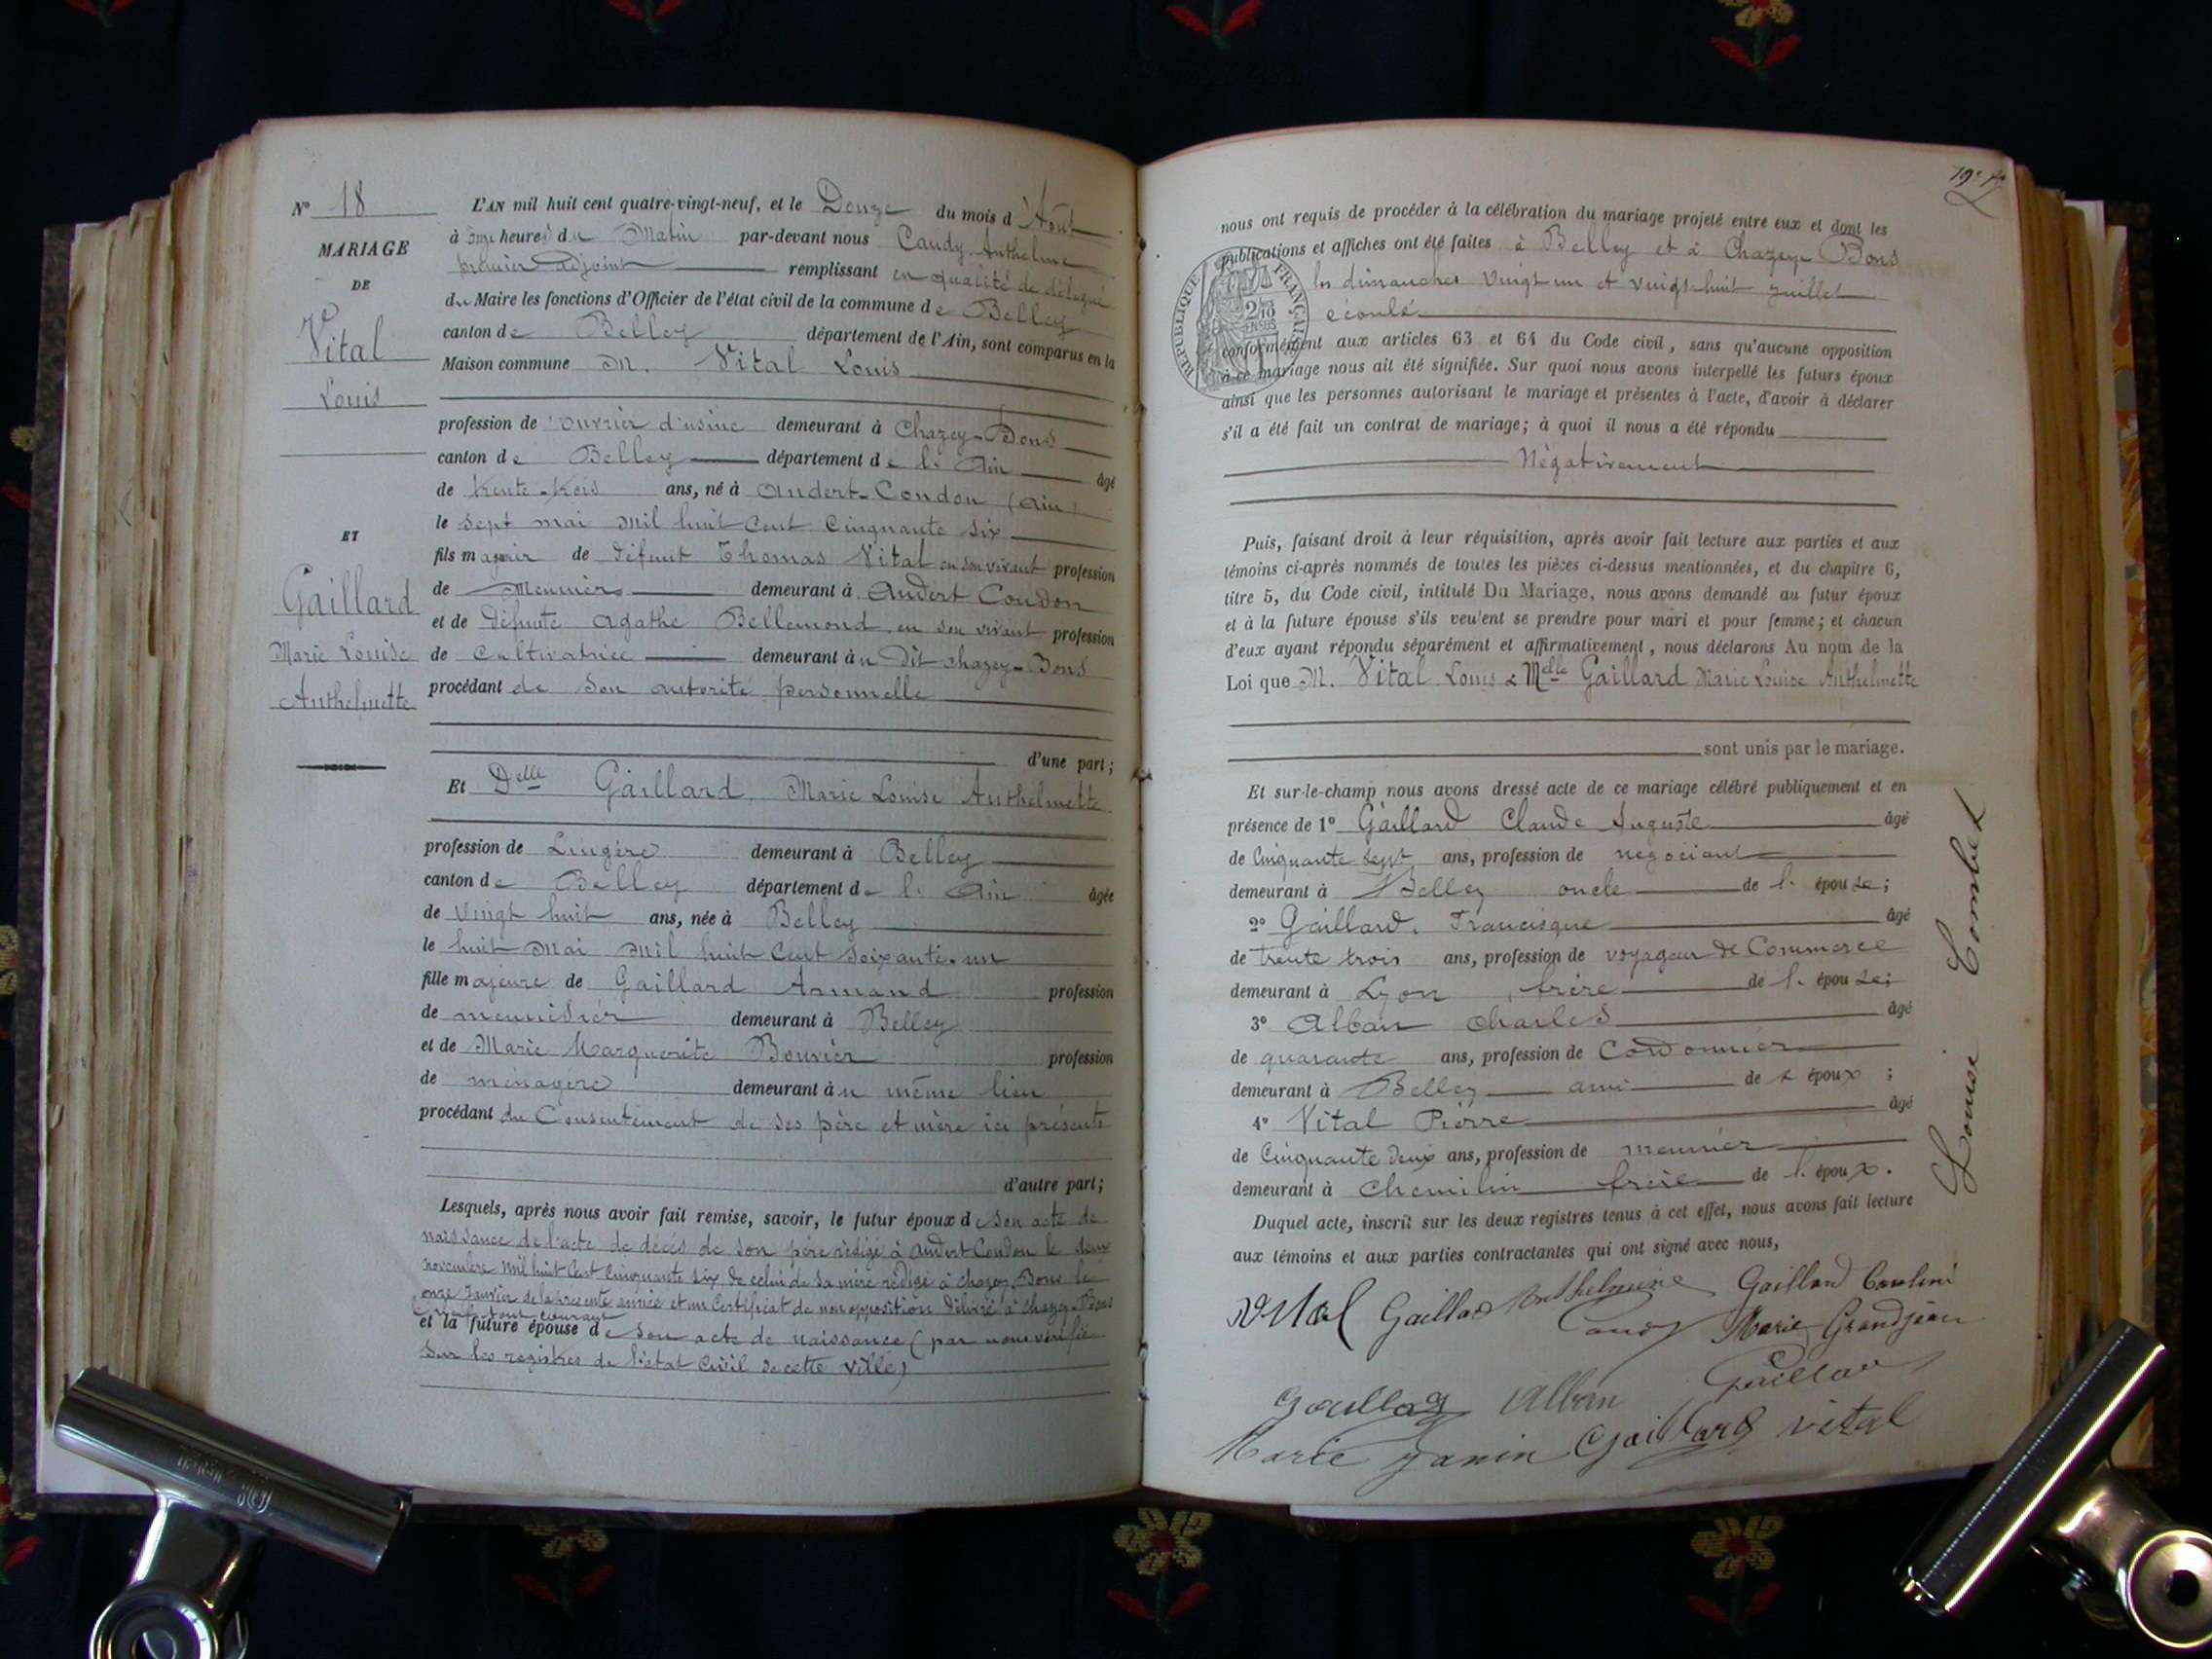 N° 18
MARIAGE
DE
Vital
Louis
ET
Gaillard
Marie Louise
Anthelmette
L'AN mil huit cent quatre-vingt-neuf, et le Douze du mois d'Aout
à onze heures du Matin par-devant nous Candy Anthelme
premier adjoint remplissant en qualité de délégué
du Maire les fonctions d'Officier de l'état civil de la commune de Belley
canton de Belley département de l'Ain, sont comparus en la
Maison commune M. Vital Louis
profession de ouvrier d'usine demeurant à Chazey-Bons
canton de Belley département de l'Ain âgé
de trente-trois ans, né à Andert-Condon (Ain)
le sept mai mil huit cent cinquante six
fils majeur de défunt Thomas Vital en son vivant profession
de Meunier demeurant à Andert Condon
et de défunte Agathe Bellemond en son vivant profession
de Cultivatrice demeurant àu dit chazey-Bons
procédant de son autorité personnelle
d'une part;
Et Delle Gaillard Marie Louise Anthelmette
profession de Lingère demeurant à Belley
canton de Belley département de l'Ain âgée
de vingt huit ans, née à Belley
le huit Mai mil huit cent soixante-un
fille majeure de Gaillard Armand profession
de menuisier demeurant à Belley
et de Marie Marguerite Bouvier profession
de ménagère demeurant àu même lieu
procédant du Consentement de ses père et mère ici présents
d'autre part;
Lesquels, après nous avoir fait remise, savoir, le futur époux de son acte de
naissance de l'acte de décès de son père rédigé à Andert Condon le deux
novembre mil huit cent cinquante six de celui de sa mère rédigé à chazey Bons le
onze Janvier de la présente année et un Certificat de non opposition délivré à chazey-Bons
courant
et la future épouse de son acte de naissance (par nous vérifié
sur les registres de l'état Civil de cette ville)
nous ont requis de procéder à la célébration du mariage projeté entre eux et dont les
publications et affiches ont été faites à Belley et à Chazey-Bons
les dimanches vingt un et vingt-huit juillet
écoulé
REPUBLIQUE FRANÇAISE
2/10 EN SUS
conformément aux articles 63 et 64 du Code civil, sans qu'aucune opposition
à ce mariage nous ait été signifiée. Sur quoi nous avons interpellé les futurs époux
ainsi que les personnes autorisant le mariage et présentes à l'acte, d'avoir à déclarer
s'il a été fait un contrat de mariage; à quoi il nous a été répondu
Négativement
Puis, faisant droit à leur réquisition, après avoir fait lecture aux parties et aux
témoins ci-après nommés de toutes les pièces ci-dessus mentionnées, et du chapitre 6,
titre 5, du Code civil, intitulé Du Mariage, nous avons demandé au futur époux
et à la future épouse s'ils veulent se prendre pour mari et pour femme; et chacun
d'eux ayant répondu séparément et affirmativement, nous déclarons Au nom de la
Loi que M. Vital Louis & Melle Gaillard Marie Louise Anthelmette
sont unis par le mariage.
Et sur-le-champ nous avons dressé acte de ce mariage célébré publiquement et en
présence de 1° Gaillard Claude Auguste âgé
de Cinquante sept ans, profession de négociant
demeurant à Belley oncle de l'épouse;
2° Gaillard Francisque âgé
de trente trois ans, profession de voyageur de Commerce
demeurant à Lyon, frère de l'épouse;
3° Alban Charles âgé
de quarante ans, profession de Cordonnier
demeurant à Belley ami de l'époux;
4° Vital Pierre âgé
de Cinquante deux ans, profession de meunier
demeurant à Chemilin frère de l'époux.
Duquel acte, inscrit sur les deux registres tenus à cet effet, nous avons fait lecture
aux témoins et aux parties contractantes qui ont signé avec nous,
Vital Gaillard Anthelmine Gaillard Caroline
Candy Marie Grandjean
Gaillard Alban Gaillard
Marie Janin Gaillard vital
Louise Combet